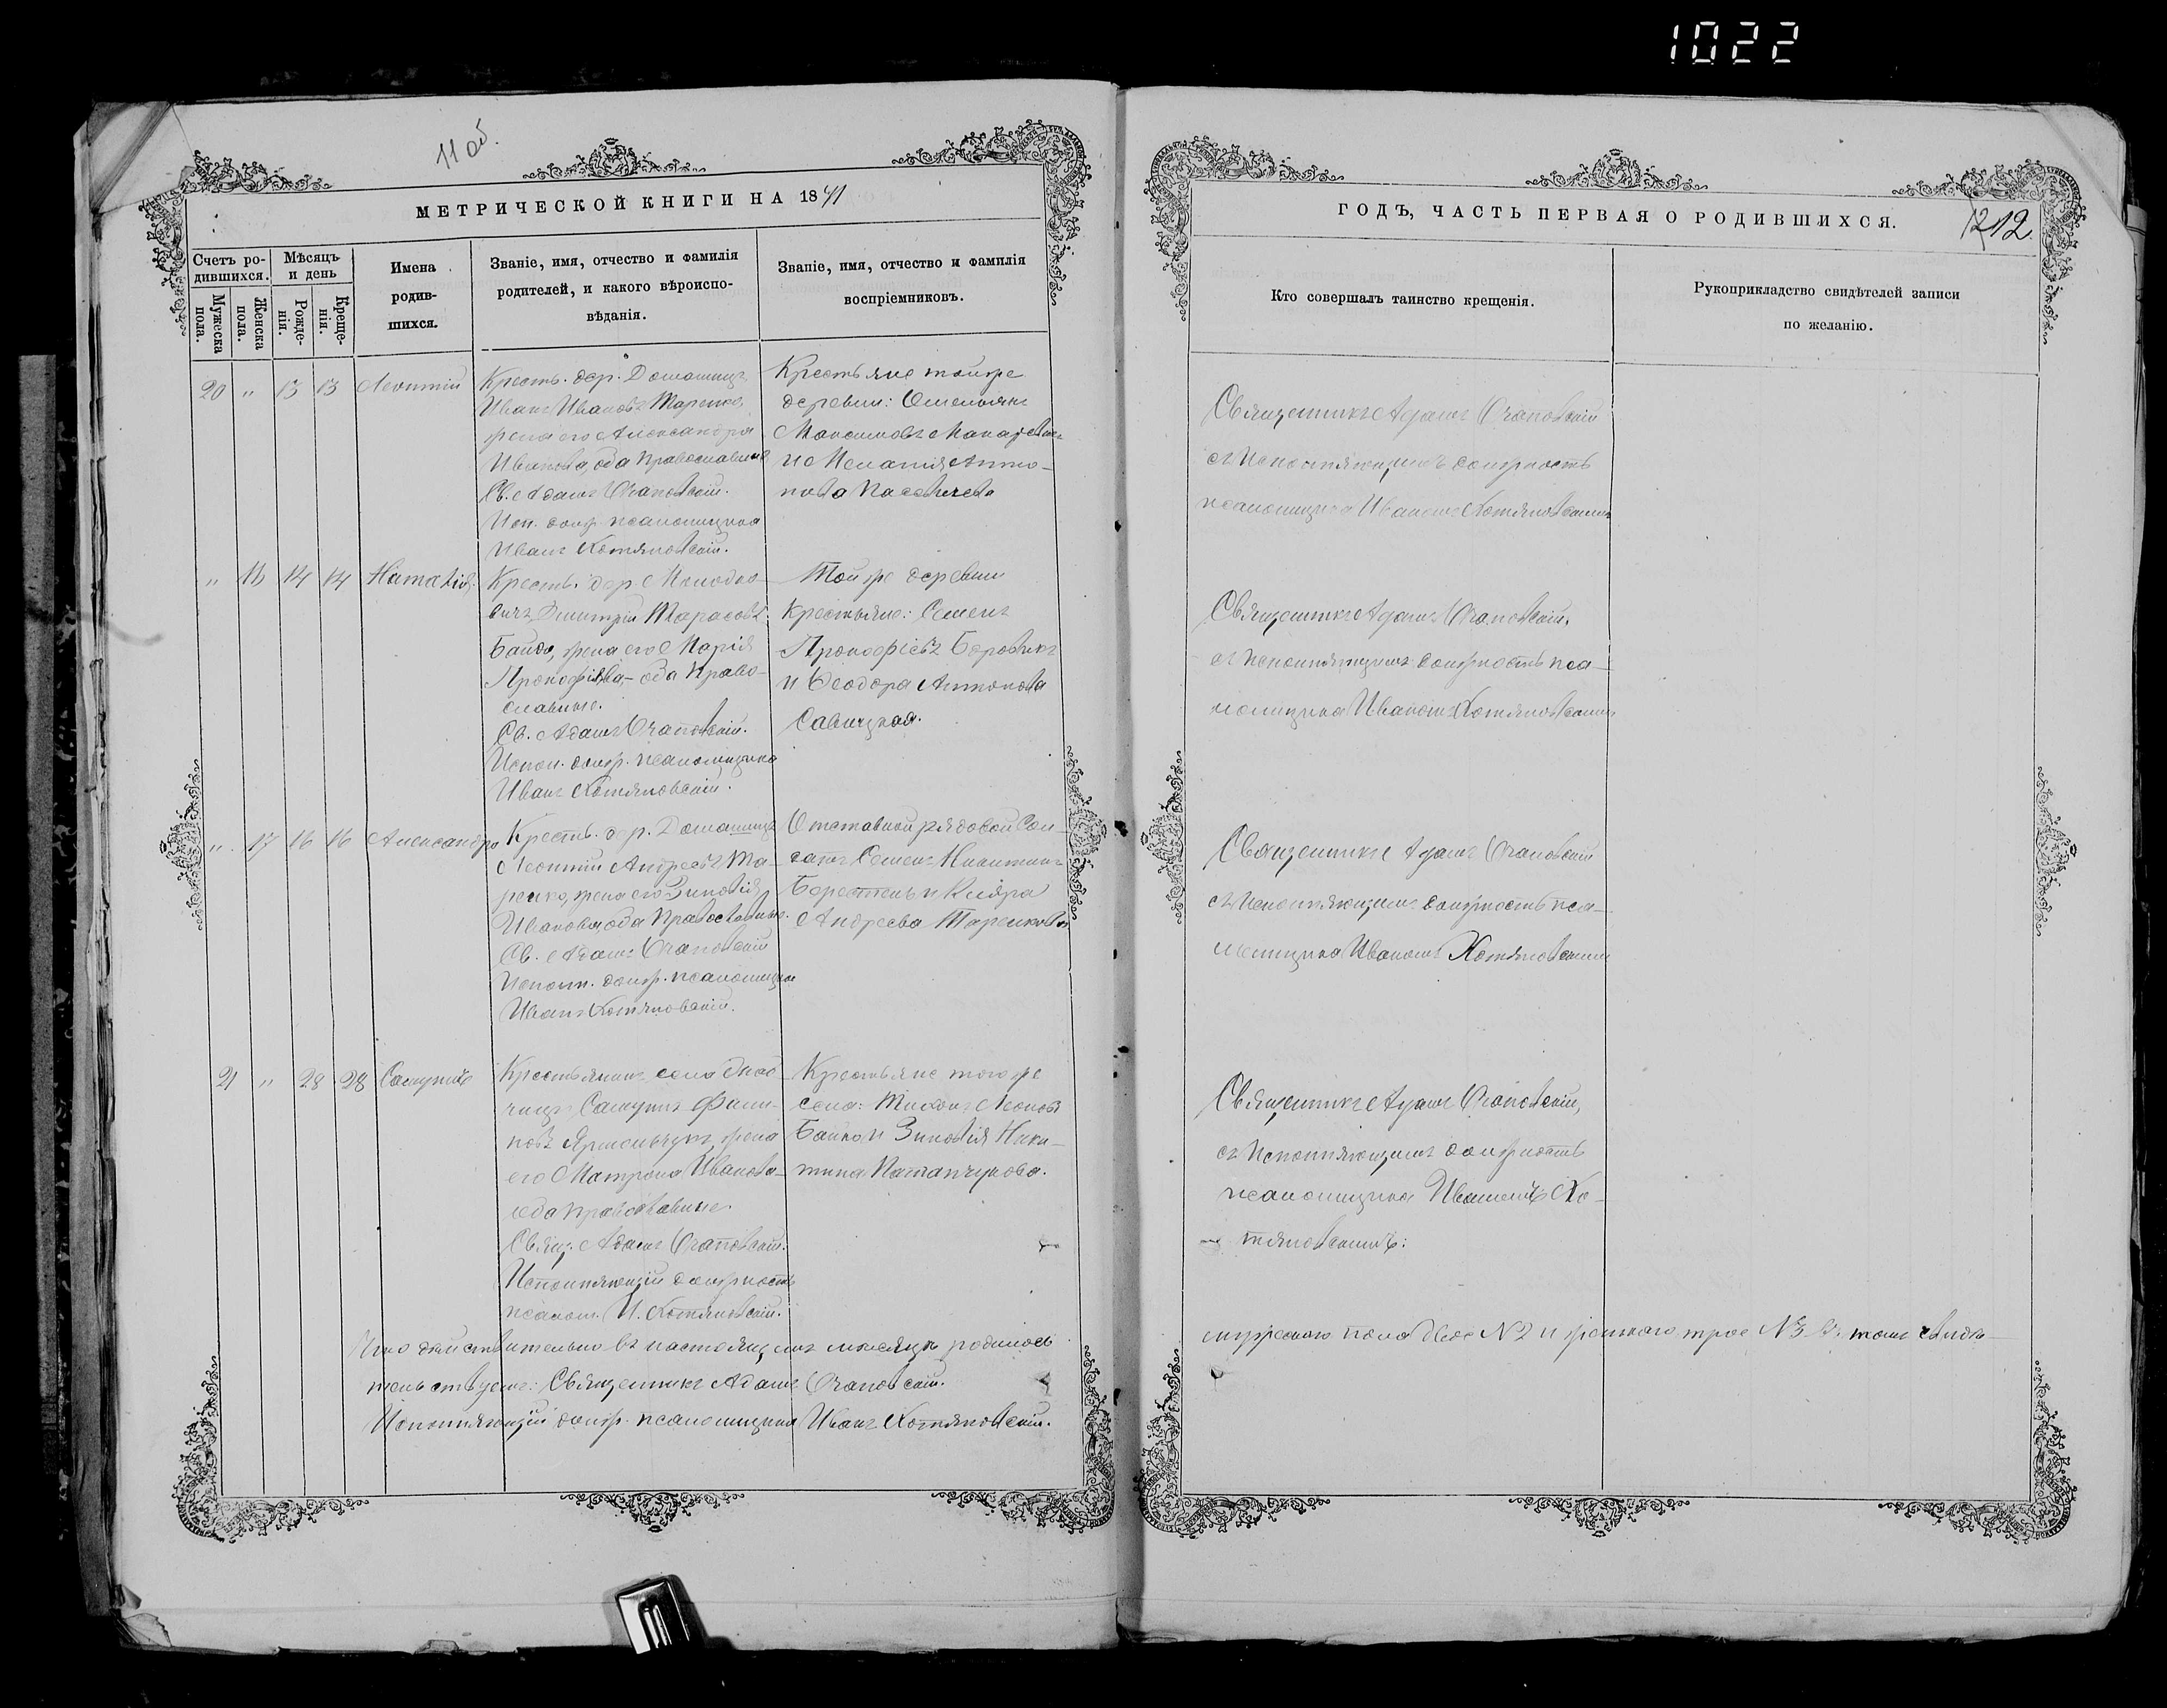 1022
11 об.
МЕТРИЧЕСКОЙ КНИГИ НА 1871
Счетъ родившихся.
Мѣсяцъ и день
Мужеска пола.
Женска пола.
Рожденія.
Крещенія.
Имена
родив-
шихся.
Званіе, имя, отчество и фамилія
родителей, и какого вѣроиспо-
вѣданія.
Званіе, имя, отчество и фамилія
воспріемниковъ.
20 " 13 13 Леонтій
Кресть. дер. Домашицъ
Иванъ Ивановъ Таренко,
жена его Александра
Иванова, оба православные
Св. Адамъ
Исп. долж. псаломщика
Иванъ Котяновскій.
Крестьяне тойже
деревни: Омельянъ
Максимовъ
и Меланія Анто-
нова
" 16 14 14 Наталія
Кресть. дер. Молодель-
Дмитрій Тарасовъ
Байда, жена его Марія
Прокофіева - оба право-
славные.
Св. Адамъ
Испол. долж. псаломщика
Иванъ Котяновскій.
Той же деревни
Крестьяне: Семенъ
Прокофіевъ Боровикъ
и Ѳеодора Антонова
Савицкая.
" 17 16 16 Александра
Кресть. дер. Домашицъ
Леонтій Андреевъ Та-
ренко, жена его Зиновія
Иванова оба православные.
Св. Адамъ
Исполн. долж. псаломщика
Иванъ Котяновскій.
Отставной рядовой Сол-
датъ Семенъ Никитинъ
и
Андреева Таренкова
21 " 28 28 Самуилъ
Крестьянинъ села
Самуилъ Фили-
повъ жена
его Матрона Иванова
оба православные
Свящ. Адамъ
Исполняющій должность
псалом. И. Котяновскій.
Крестьяне того же
села: Тихонъ Леоновъ
Байко и Зиновія Ники-
тина
Что дѣйствительно въ настоящемъ мѣсяцѣ родилось
тельствуемъ: Священникъ Адамъ
Исполняющій долж. псаломщика Иванъ Котяновскій.
ГОДЪ, ЧАСТЬ ПЕРВАЯ О РОДИВШИХСЯ.
12 12
Кто совершалъ таинство крещенія.
Рукоприкладство свидѣтелей записи
по желанію.
Священникъ Адамъ
съ исполняющимъ должность
псаломщика Иваномъ Котяновскимъ
Священникъ Адамъ
съ исполняющимъ должность пса-
ломщика Иваномъ Котяновскимъ
Священникъ Адамъ
съ исполняющимъ должность пса-
ломщика Иваномъ Котяновскимъ
Священникъ Адамъ
съ исполняющимъ должность
псаломщика Иваномъ Ко-
тяновскимъ:
мужескаго пола двое №2 и женскаго трое №3 въ томъ свидѣ-